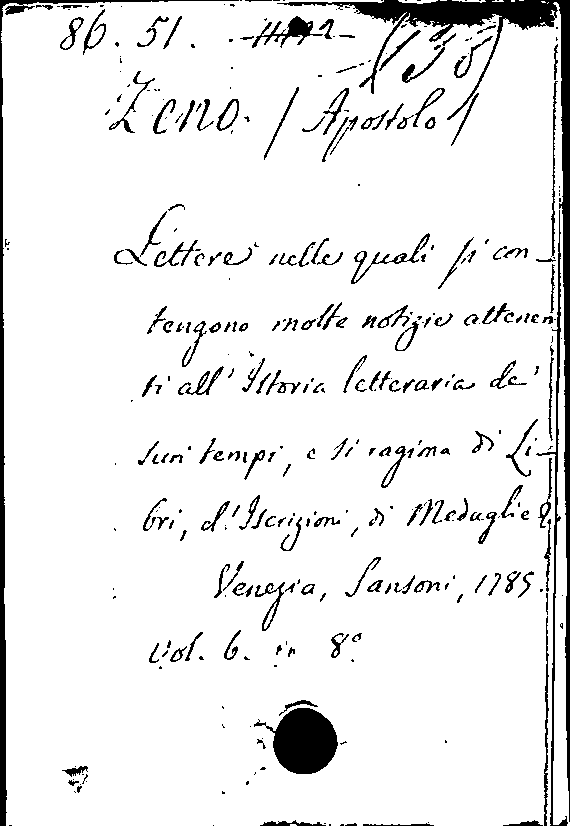 86. 51.
(138)
Zeno. / Apostolo /
Lettere nelle quali si con-
tengono molte notizie attenen
ti all' Istoria letteraria de'
suoi tempi, e si ragiona di Li-
bri, d'Iscrizioni, di Medaglie &.
Venezia, Sansoni, 1785.
Vol. 6. in 8º